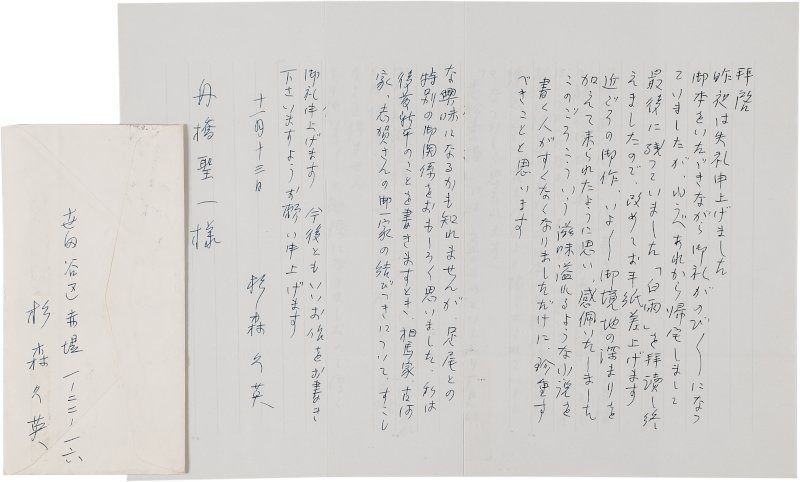 拝啓
昨夜は失礼申上げました
御本をいただきながら御礼がのび〱になつ
ていましたが、ゆうべあれから帰宅しまして
最後に残つていました「白雨」を拝読し終
えましたので、改めてお手紙差上げます
近ごろの御作、いよ〱御境地の深まりを
加えて来られたように思い、感佩いたしました
このごろこういう滋味溢れるような小説を
書く人がすくなくなりましただけに、珍重す
べきことと思います
な興味になるかも知れませんが、足尾との
特別の御関係をおもしろく思いました、私は
後藤新平のことを書きますとき、相馬家、古河
家、志賀さんの御一家の結びつきについて、すこし
御礼申上げます 今後ともいいお作をお書き
下さいますようお願い申上げます
十一月十三日
杉森久英
舟橋聖一様
世田谷区赤堤一ー二二ー一六
杉森久英